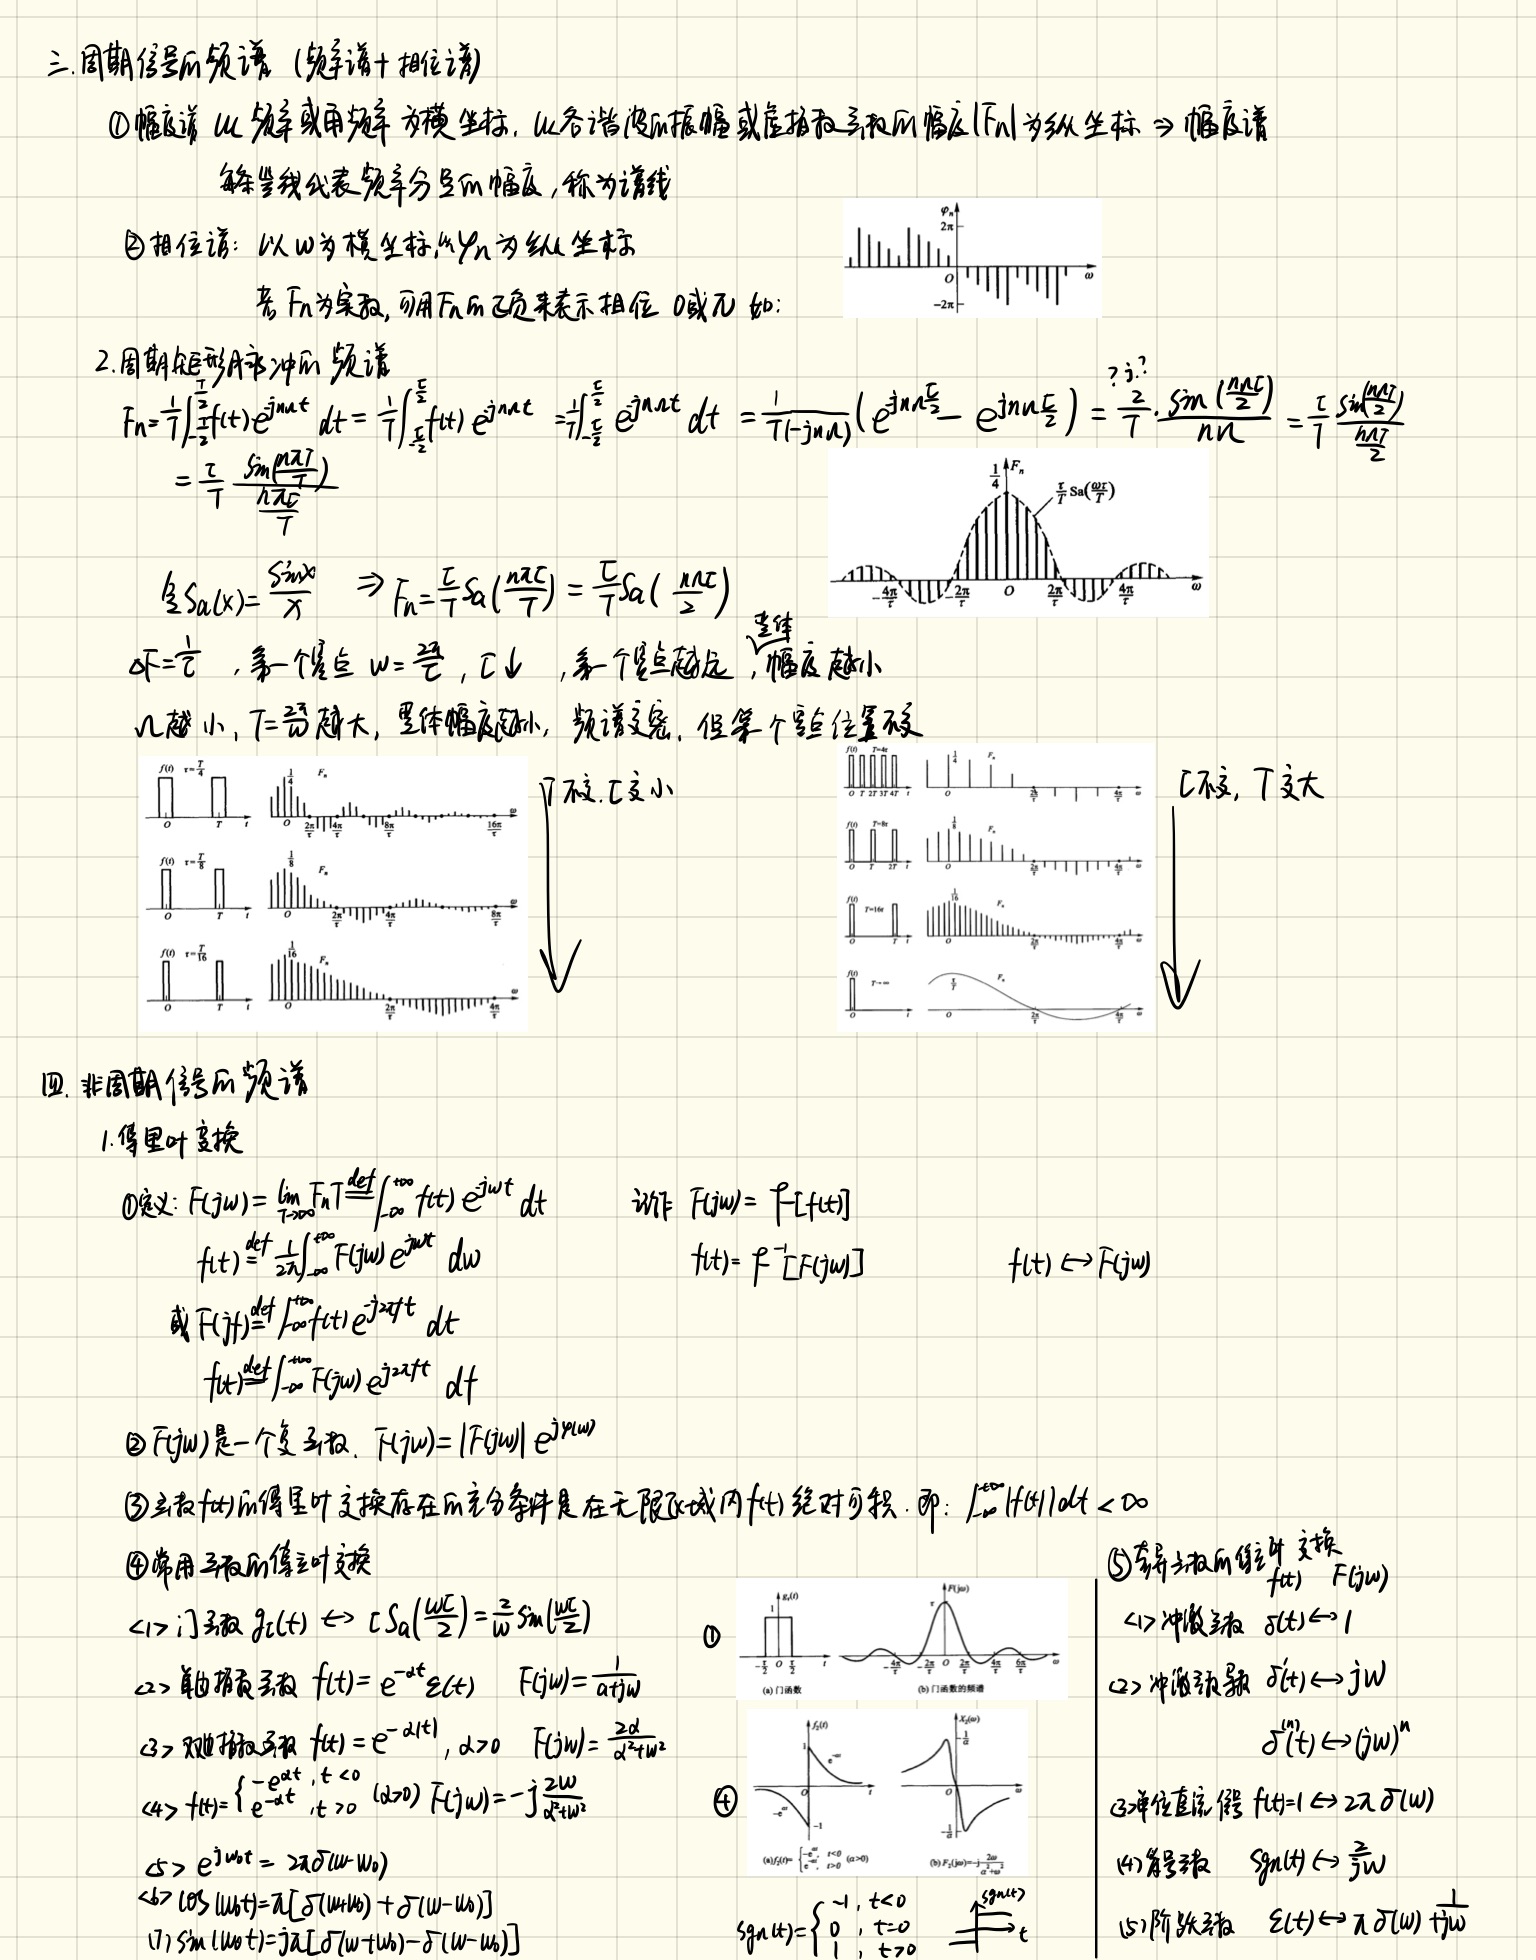 三.周期信号的频谱 (频率谱+相位谱)
①幅度谱 以频率或角频率为横坐标,以各谐波的振幅或虚指数函数的幅度|Fn|为纵坐标 ⇒ 幅度谱
每条竖线代表频率分量的幅度,称为谱线
②相位谱: 以ω为横坐标,以φn为纵坐标
若Fn为实数,可用Fn的正负来表示相位 0或π 如:
φn 2π O -2π ω
2.周期矩形脉冲的频谱
Fn=1/T∫_{-T/2}^{T/2} f(t) e^{-jnΩt} dt = 1/T∫_{-τ/2}^{τ/2} f(t) e^{-jnΩt} = 1/T∫_{-τ/2}^{τ/2} e^{-jnΩt} dt = 1/(T(-jnΩ)) (e^{-jnΩτ/2} - e^{jnΩτ/2}) = 2/T · sin(nΩτ/2)/nΩ = τ/T sin(nΩτ/2)/(nΩτ/2)
?j.?
= τ/T sin(nπτ/T)/(nπτ/T)
1/4 Fn τ/T Sa(ωτ/T)
-4π/τ -2π/τ O 2π/τ 4π/τ ω
令Sa(x)=sinx/x ⇒ Fn=τ/T Sa(nπτ/T) = τ/T Sa(nΩτ/2)
ΔF=1/τ ,第一个零点 ω=2π/τ , τ↓ ,第一个零点越远 ,整体幅度越小
Ω越小, T=2π/ω越大, 整体幅度越小, 频谱变密, 但第个零点位置不变
f(t) τ=T/4 O T t 1/4 Fn O 2π/τ 4π/τ 8π/τ 16π/τ ω
f(t) τ=T/8 O T t 1/8 Fn O 2π/τ 4π/τ 8π/τ ω
f(t) τ=T/16 O T t 1/16 Fn O 2π/τ 4π/τ ω
T不变.τ变小
f(t) T=4τ O T 2T 3T 4T t 1/4 Fn O 2π/τ 4π/τ ω
f(t) T=8τ O T 2T t 1/8 Fn O 2π/τ 4π/τ ω
f(t) T=16τ O T t 1/16 Fn O 2π/τ 4π/τ ω
f(t) T→∞ O t τ/T Fn O 2π/τ 4π/τ ω
τ不变, T变大
四. 非周期信号的频谱
1.傅里叶变换
①定义: F(jω) = lim_{T→∞} FnT def= ∫_{-∞}^{+∞} f(t) e^{-jωt} dt 记作 F(jω) = F[f(t)]
f(t) def= 1/2π ∫_{-∞}^{+∞} F(jω) e^{jωt} dω f(t) = F^{-1}[F(jω)] f(t) ↔ F(jω)
或 F(jf) def= ∫_{-∞}^{+∞} f(t) e^{-j2πft} dt
f(t) def= ∫_{-∞}^{+∞} F(jω) e^{j2πft} df
② F(jω)是一个复函数. F(jω) = |F(jω)| e^{jφ(ω)}
③函数f(t)的傅里叶变换存在的充分条件是在无限区域内f(t)绝对可积.即: ∫_{-∞}^{+∞}|f(t)|dt < ∞
④常用函数的傅立叶变换
<1> 门函数 gτ(t) ↔ τSa(ωτ/2) = 2/ω sin(ωτ/2)
<2> 单边指数函数 f(t) = e^{-αt}ε(t) F(jω) = 1/(α+jω)
<3> 双边指数函数 f(t) = e^{-α|t|} , α>0 F(jω) = 2α/(α²+ω²)
<4> f(t)={ -e^{αt} , t<0 e^{-αt} , t>0 (α>0) F(jω) = -j 2ω/(α²+ω²)
<5> e^{jω0t} = 2πδ(ω-ω0)
<6> cos(ω0t)=π[δ(ω+ω0)+δ(ω-ω0)]
(7) sin(ω0t)=jπ[δ(ω+ω0)-δ(ω-ω0)]
① 1 gτ(t) -τ/2 O τ/2 t τ F(jω) -4π/τ -2π/τ O 2π/τ 4π/τ 6π/τ ω
(a) 门函数 (b) 门函数的频谱
④ f2(t) 1 e^{-αt} O t -e^{αt} -1 X2(ω) 1/α O ω -1/α
(a) f2(t)={ -e^{αt}, t<0 e^{-αt}, t>0 (α>0) (b) F2(jω)=-j 2ω/(α²+ω²)
sgn(t)={ -1 , t<0 0 , t=0 1 , t>0 sgn(t) t
⑤奇异函数的傅立叶变换
f(t) F(jω)
<1> 冲激函数 δ(t)↔1
(2) 冲激函数导数 δ'(t)↔jω
δ^{(n)}(t)↔(jω)^n
(3)单位直流信号 f(t)=1↔2πδ(ω)
(4)符号函数 sgn(t)↔2/jω
(5)阶跃函数 ε(t)↔πδ(ω)+1/jω